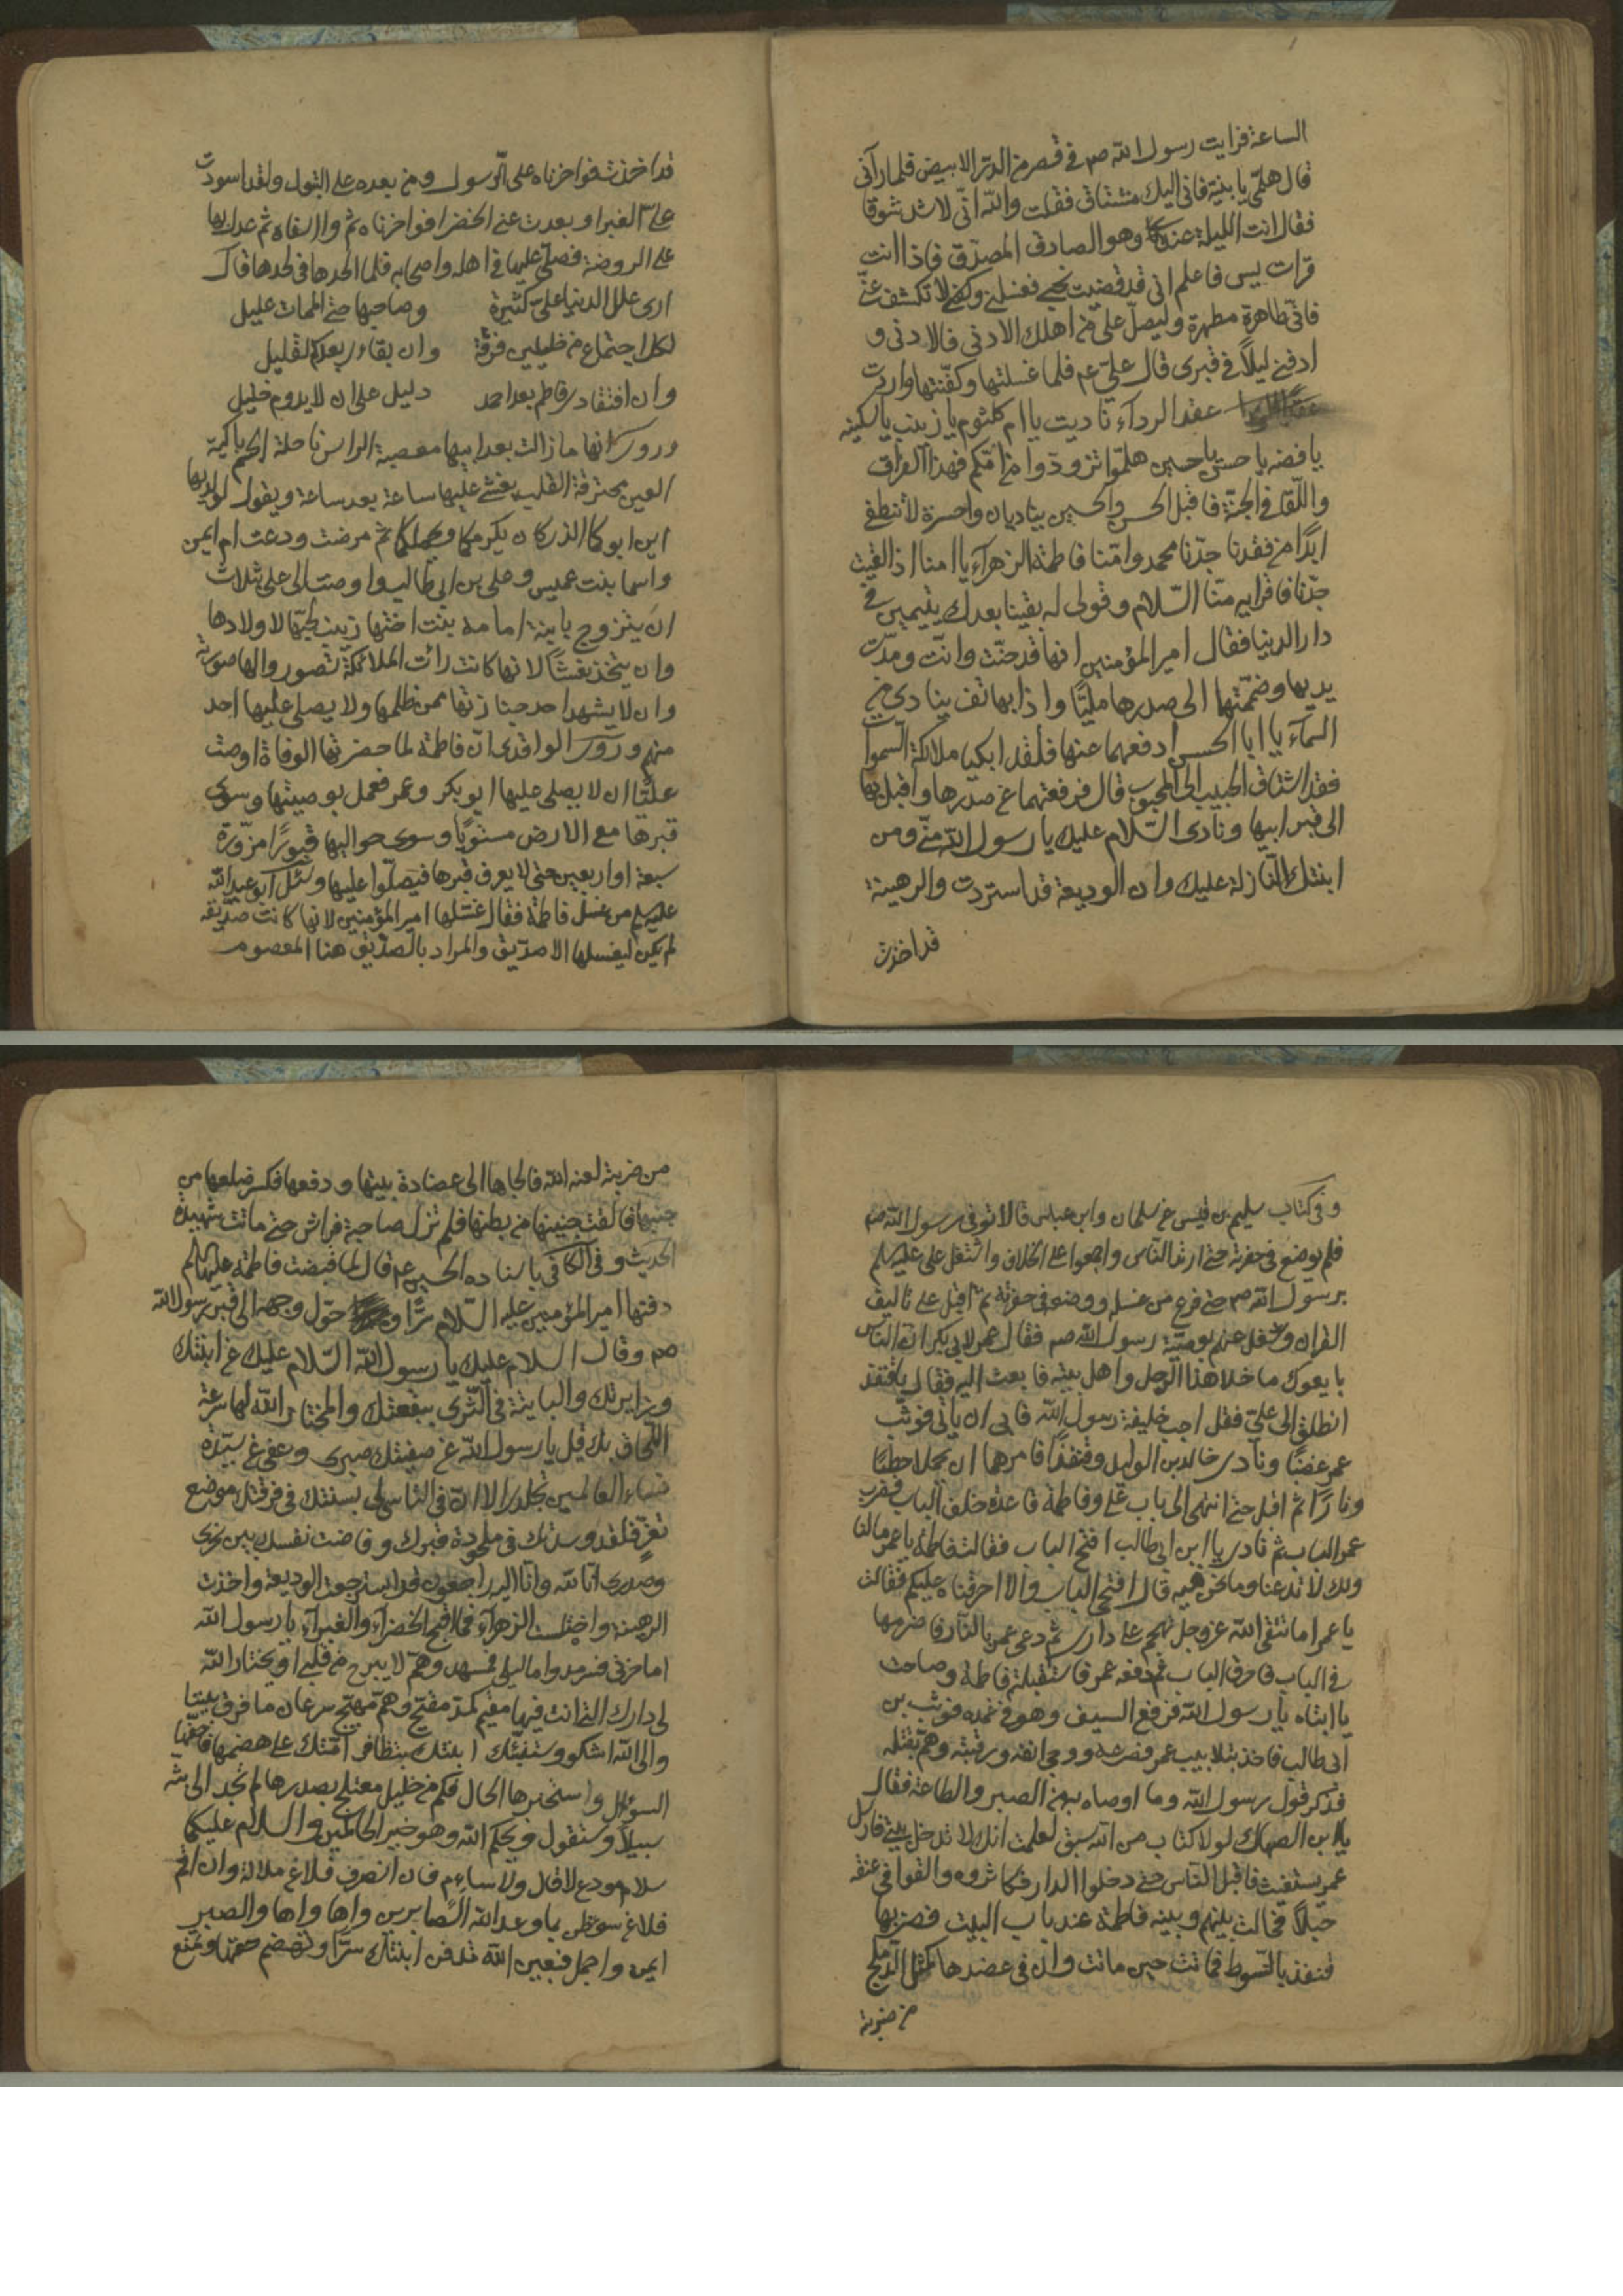 الساعة فرايت رسول الله صم في قصر من الدر الابيض فلما رآنى
قال هلمّى يا بنية فانى اليك مشتاق فقلت والله انى لاشد شوقا
فقال انت الليلة عندنا وهو الصادق المصدّق فاذا انت
قرات يس فاعلم انى قد قضيت نحبى فغسلنى وكفنى لا تكشف عنّى
فانى طاهرة مطهرة وليصلّ علىّ من اهلك الادنى فالادنى و
ادفنى ليلاً فى قبرى قال علىّ عم فلما غسلتها وكفّنتها واردت
عقد الردآء ناديت يا ام كلثوم يا زينب يا سكينه
يا فضه يا حسن يا حسين هلمّوا تزودّوا من امّكم فهذا الفراق
واللّقا فى الجنّة فاقبل الحسن والحسين يناديان واحسرة لا تنطفى
ابدًا من فقدنا جدّنا محمد وامّنا فاطمة الزهرآء يا امنا اذا لقيت
جدّنا فاقرايه منّا السّلام وقولى له بقينا بعدك يتيمين فى
دار الدنيا فقال امير المؤمنين انها قد حنّت وانّت ومدّت
يديها وضمّتهما الى صدرها مليّا واذا بهاتف ينادى من
السمآء يا ابا الحسن ادفعهما عنها فلقد ابكيا ملائكة السّموات
فقد اشتاق الحبيب الى المحبوب قال فرفعتهما عن صدرها واقبل بها
الى قبر ابيها ونادى السّلام عليك يا رسول الله منّى ومن
ابنتك النّازلة عليك وان الوديعة قد استردت والرهينة
قد اخذت
قد اخذت فواحزناه على الرّسول ومن بعده على البتول ولقد اسودت
علىّ الغبرا وبعدت عنى الخضرا فواحزناه ثم وا اسفاه ثم عدل بها
على الروضة فصلّى عليها فى اهله واصحابه فلما الحدها فى لحدها قال
ارى علل الدنيا علىّ كثيرة وصاحبها حتى الممات عليل
لكل اجتماع من خليلين فرقة وان بقاءى بعدكم لقليل
وان افتقادى فاطم بعد احمد دليل على ان لا يدوم خليل
وروى انها ما زالت بعد ابيها معصبة الراس ناحلة الجسم باكية
العين محترقة القلب يغشى عليها ساعة بعد ساعة ويقول لولديها
اين ابوكما الذى كان يكرمكما ويحملكما ثم مرضت ودعت ام ايمن
واسما بنت عميس وعلى بن ابى طالب واوصت الى على بثلاث
ان يتزوج بابنة امامة بنت اختها زينب لحبّها لاولادها
وان يتخذ نعشًا لانها كانت رأت الملائكة تصوروا لها صورته
وان لا يشهد احد جنازتها ممن ظلمها ولا يصلى عليها احد
منهم وروى الواقدى انّ فاطمة لما حضرتها الوفاة اوصت
عليّا ان لا يصلى عليها ابو بكر وعمر فعمل بوصيتها وسوى
قبرها مع الارض مستويًا وسوى حواليها قبورًا مزوّرة
سبعة او اربعين حتى لا يعرف قبرها فيصلّوا عليها وسئل ابو عبد الله
عليه لم من غسل فاطمة فقال غسّلها امير المؤمنين لانها كانت صدّيقة
لم يكن ليغسلها الا صدّيق والمراد بالصّديق هنا المعصوم
وفى كتاب سليم بن قيس عن سلمان وابن عباس قالا توفى رسول الله صم
فلم يوضع فى حفرته حتى ارتد النّاس واجمعوا على الخلاف واشتغل على عليه لم
برسول الله صم حتى فرغ من غسله ووضعه فى حفرته ثم اقبل على تاليف
القران وشغل عنهم بوصيّة رسول الله صم فقال عمر لابى بكر انّ النّاس
بايعوك ما خلا هذا الرّجل واهل بيته فابعث اليه فقال يا قنفذ
انطلق الى علىّ فقل اجب خليفة رسول الله فابى ان ياتى فوثب
عمر غضبًا ونادى خالد بن الوليد وقنفذًا فامرهما ان يحملا حطبًا
ونارًا ثم اقبل حتى انتهى الى باب على وفاطمة قاعدة خلف الباب فضرب
عمر الباب ثم نادى يا ابن ابى طالب افتح الباب فقالت فاطمة يا عمر مالنا
ولك لا تدعنا وما نحن فيه قال افتحى الباب والا احرقناه عليكم فقالت
يا عمر اما تتقى الله عز وجل تهجم على دارى ثم دعى عمر بالنّار فاضرمها
فى الباب فاحرق الباب ثم دفعه عمر فاستقبلته فاطمة وصاحت
يا ابتاه يا رسول الله فرفع السيف وهو فى غمده فوثب بن
ابى طالب فاخذ بتلابيب عمر فصرعه ووجى انفه ورقبته وهمّ بقتله
فذكر قول رسول الله وما اوصاه به من الصبر والطاعة فقال
يا بن الصهاك لولا كتاب من الله سبق لعلمت انك لا تدخل بيتى فارسل
عمر يستغيث فاقبل النّاس حتى دخلوا الدار فكاثروه والقوا فى عنقه
حبلاً فحالت بينهم وبينه فاطمة عند باب البيت فضربها
قنفذ بالسّوط فماتت حين ماتت وان فى عضدها كمثل الدّملج
من ضربته
من ضربته لعنه الله فالجاها الى عضادة بيتها ودفعها فكسر ضلعها من
جنبها فالقت جنينها من بطنها فلم تزل صاحبة فراش حتى ماتت شهيدة
الحديث وفى الكافى باسناده الحسين عم قال لما قبضت فاطمة عليها لم
دفنها امير المؤمنين عليه السّلام سرًّا حوّل وجهه الى قبر رسول الله
صم وقال السلام عليك يا رسول الله السّلام عليك عن ابنتك
وزايرتك والبايتة فى الثّرى ببقعتك والمختار الله لها سرعة
اللّحاق بك قل يا رسول الله عن صفيتك صبرى وعفى عن سيّدة
نساء العالمين تجلدى الا انّ فى التاسى لى بسنتك فى فرقتك موضع
تعزّ فلقد وسدتك فى ملحودة قبرك وفاضت نفسك بين نحرى
وصدرى انّا لله وانّا اليه راجعون قد استرجعت الوديعة واخذت
الرهينة واختلست الزهرآء فما اقبح الخضرآء والغبرآء يا رسول الله
اما حزنى فسرمد واما ليلى فمسهد وهمّ لا يبرح من قلبى او يختار الله
لى دارك التى انت فيها مقيم كمد مقيح وهمّ مهيّج سرعان ما فرق بيننا
والى الله اشكو وستنبّئك ابنتك بتظافر امّتك على هضمها فاحفها
السؤال واستخبرها الحال فكم من غليل معتلج بصدرها لم تجد الى بثه
سبيلاً وستقول ويحكم الله وهو خير الحاكمين والسلام عليكما
سلام مودع لا قال ولا سائم فان انصرف فلا عن ملالة وان اقم
فلا عن سوء ظن بما وعد الله الصّابرين واها واها والصبر
ايمن واجمل فبعين الله تدفن ابنتك سرًّا وتهضم حقها وتمنع